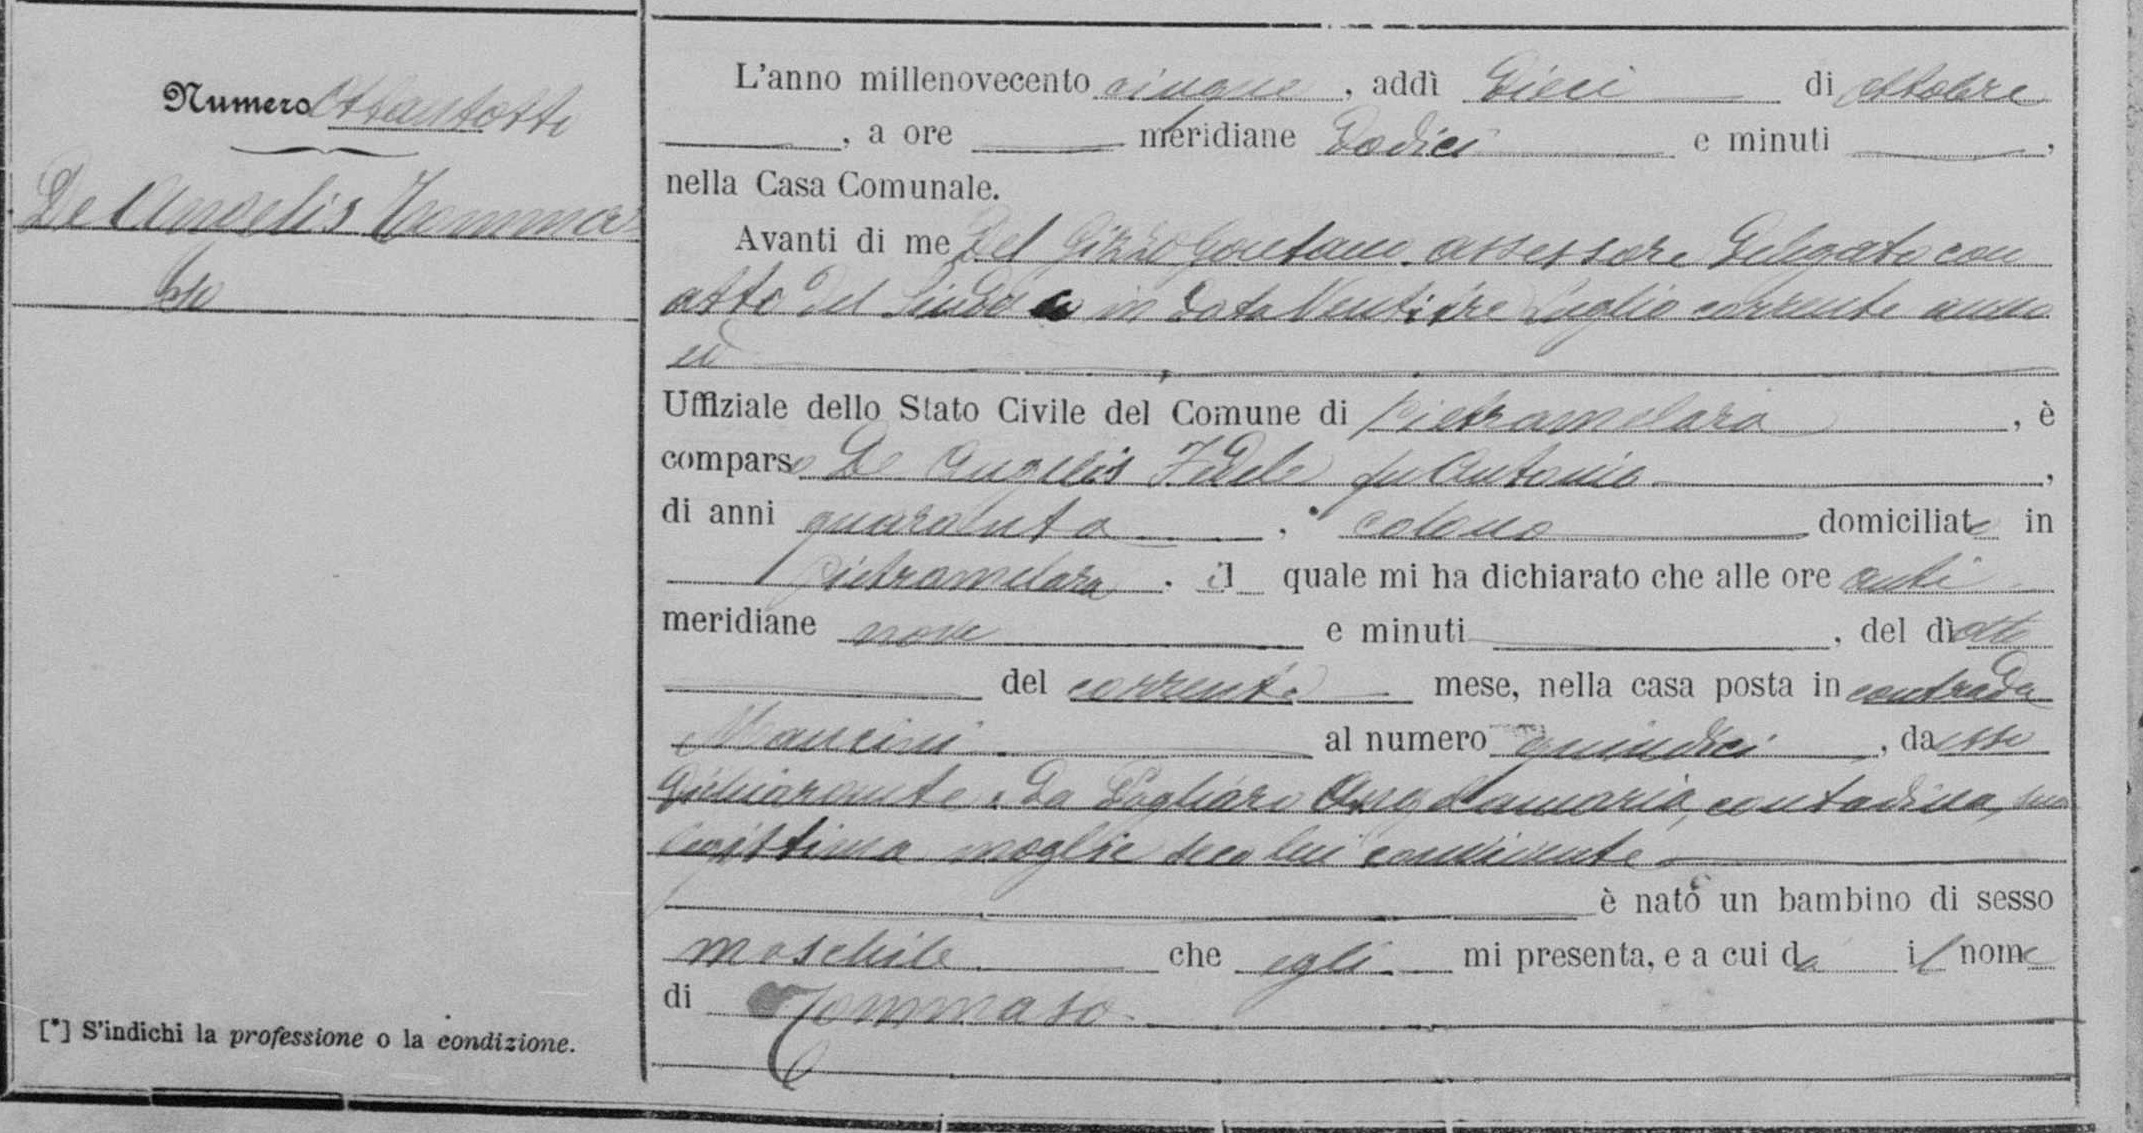 Numero Ottantotto
De Angelis Tommaso
L'anno millenovecento cinque, addì Dieci di ottobre
, a ore meridiane Dodici e minuti ,
nella Casa Comunale.
Avanti di me Del Gaetano assessore Delegato con
atto del Sindaco in data Ventitre Luglio corrente anno
Uffiziale dello Stato Civile del Comune di Pietramelara, è
comparso De Angelis Fedele fu Antonio,
di anni quaranta, * colono domiciliato in
Pietramelara, il quale mi ha dichiarato che alle ore anti
meridiane nove e minuti , del dì otto
del corrente mese, nella casa posta in contrada
Mancini al numero quindici, da esso
Dichiarante e da Angelamaria, contadina, sua
legittima moglie seco lui convivente
è nato un bambino di sesso
maschile che egli mi presenta, e a cui da il nome
di Tommaso
[*] S'indichi la professione o la condizione.